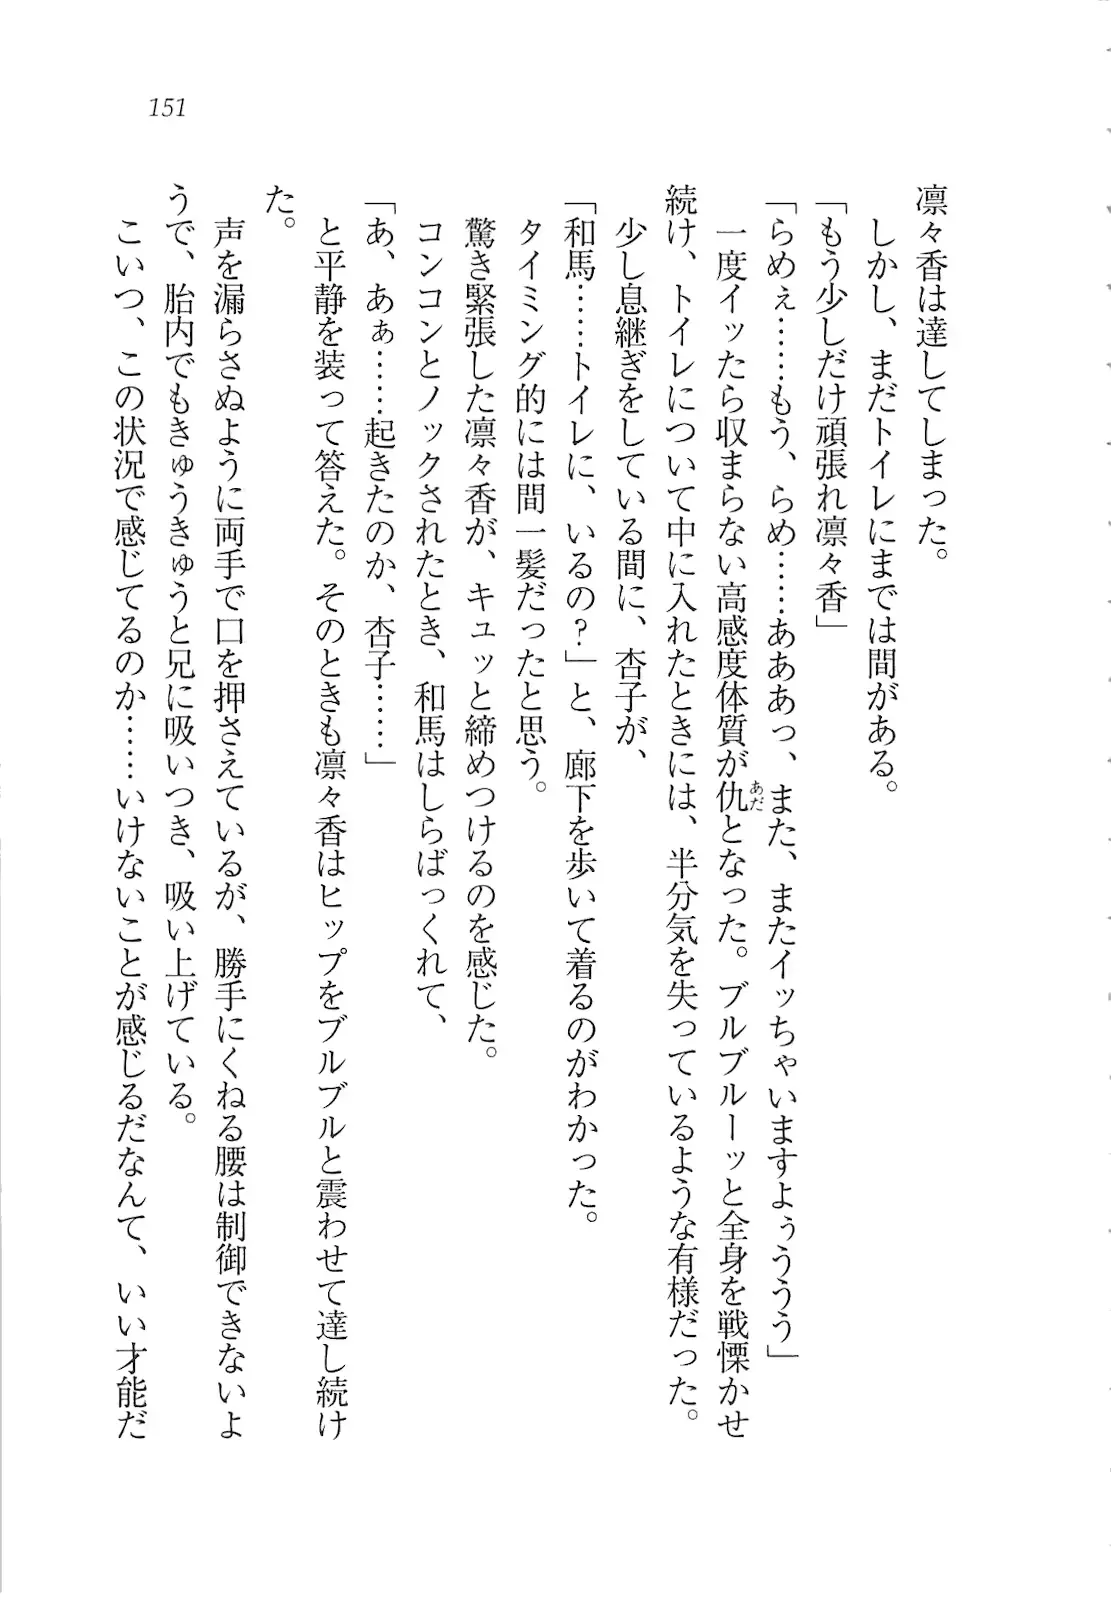 151
凛々香は達してしまった。
しかし、まだトイレにまでは間がある。
「もう少しだけ頑張れ凛々香」
「らめぇ……もう、らめ……あああっ、また、またイッちゃいますよぅううう」
一度イッたら収まらない高感度体質が仇あだとなった。ブルブルーッと全身を戦慄かせ
続け、トイレについて中に入れたときには、半分気を失っているような有様だった。
少し息継ぎをしている間に、杏子が、
「和馬……トイレに、いるの？」と、廊下を歩いて着るのがわかった。
タイミング的には間一髪だったと思う。
驚き緊張した凛々香が、キュッと締めつけるのを感じた。
コンコンとノックされたとき、和馬はしらばっくれて、
「あ、あぁ……起きたのか、杏子……」
と平静を装って答えた。そのときも凛々香はヒップをブルブルと震わせて達し続け
た。
声を漏らさぬように両手で口を押さえているが、勝手にくねる腰は制御できないよ
うで、胎内でもきゅうきゅうと兄に吸いつき、吸い上げている。
こいつ、この状況で感じてるのか……いけないことが感じるだなんて、いい才能だ